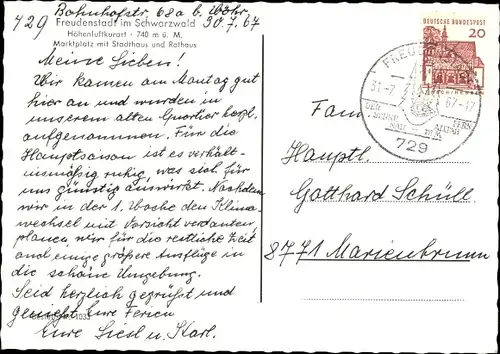 729 Bahnhofstr. 68a b. Wöhr
Freudenstadt im Schwarzwald 30.7.67
Höhenluftkurort · 740 m ü. M.
Marktplatz mit Stadthaus und Rathaus
Meine Lieben!
Wir kamen am Montag gut
hier an und wurden in
unserem alten Quartier herzl.
aufgenommen. Für die
Hauptsaison ist es verhält-
nismäßig ruhig, was sich für
uns günstig auswirkt. Nachdem
wir in der 1. Woche den Klima-
wechsel mit Vorsicht verdauten,
planen wir für die restliche Zeit
auch einige größere Ausflüge in
die schöne Umgebung.
Seid herzlich gegrüßt und
genießt Eure Ferien
Eure Liesl u. Karl.
DEUTSCHE BUNDESPOST
20
31.-7.
67-17
729
Fam.
Hauptl.
Gotthard Schüll
8771 Marienbrunn